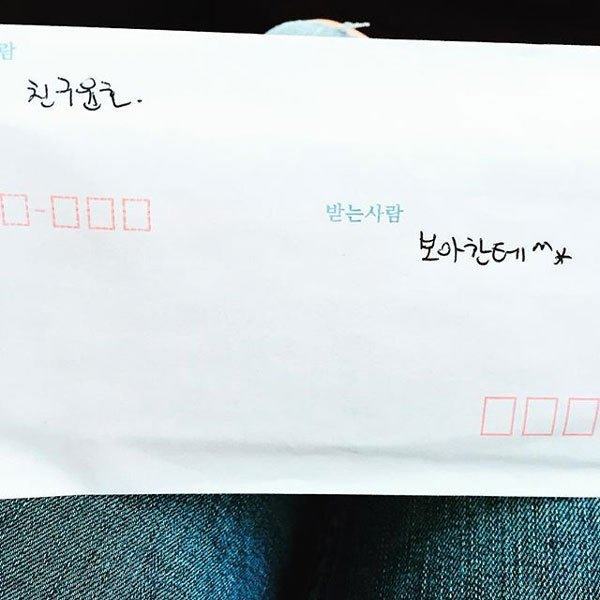 람
친구윤호.
받는사람
보아한테^^*